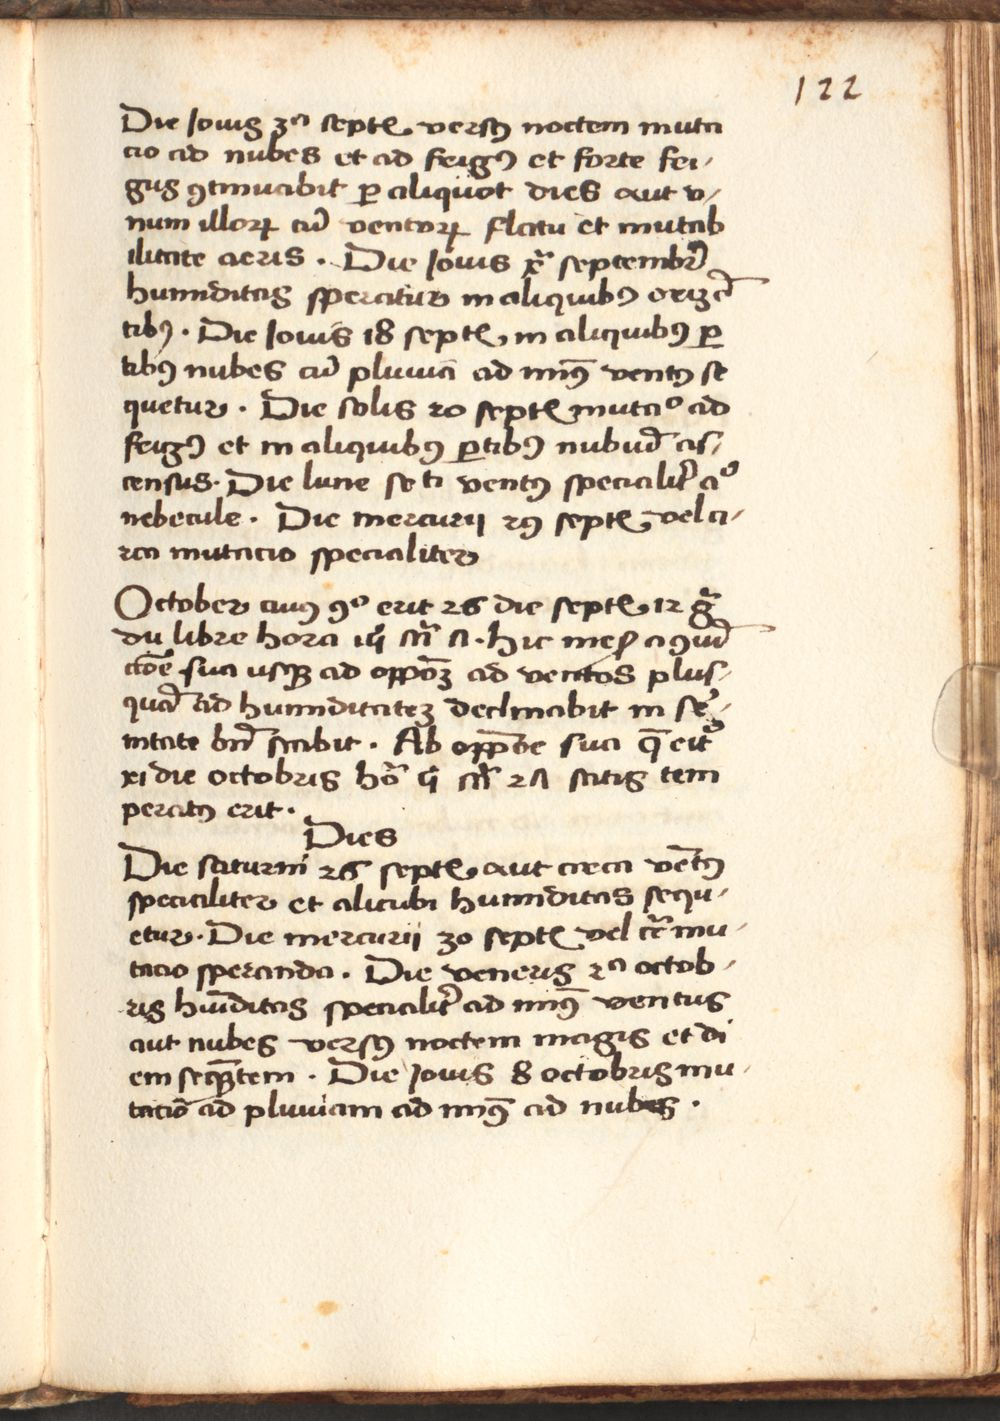 122
Die Iouis 3ᵃ septẽ versꝰ noctem muta
cio ad nubes et ad frigꝰ et forte fri⸗
gus ꝯtinuabit ꝑ aliquot dies aut v⸗
num illoꝝ cũ ventoꝝ flatu et mutab
ilitate aeris . Die Iouis septembr̃
humiditas speratur in aliquibꝰ
tibꝰ . Die Iouis 18 septẽ in aliquibꝰ ꝑ
tibꝰ nubes cũ pluuia ad minꝰ ventꝰ se
quetur . Die solis 20 septẽ mutaᵒ ad
frigꝰ et in aliquibꝰ ꝑtibꝰ nubiũ as⸗
census . Die lune ventꝰ specialit̃
nebecule . Die mercurii septẽ vel ci⸗
rca mutacio specialiter
October cuiꝰ 9ᵒ erit 26 die septẽ 12 gᷓ
du libre hora hic
sua usqꝫ ad ad ventos plus⸗
quã ad humiditatez declinabit in se⸗
nitate bñ stabit . Ab sua q̃ erit
xi die octobris satis tem
peratꝰ erit .
Dies
Die saturni 26 septẽ aut circa ventꝰ
specialiter et alicubi humiditas sequ⸗
etur . Die mercurii 30 septẽ vel mu⸗
tacio speranda . Die veneris 2ᵃ octob⸗
ris hũiditas specialit̃ ad minꝰ ventus
aut nubes versꝰ noctem magis et di
em seqũtem . Die Iouis 8 octobris mu⸗
tacio ad pluuiam ad minꝰ ad nubes .